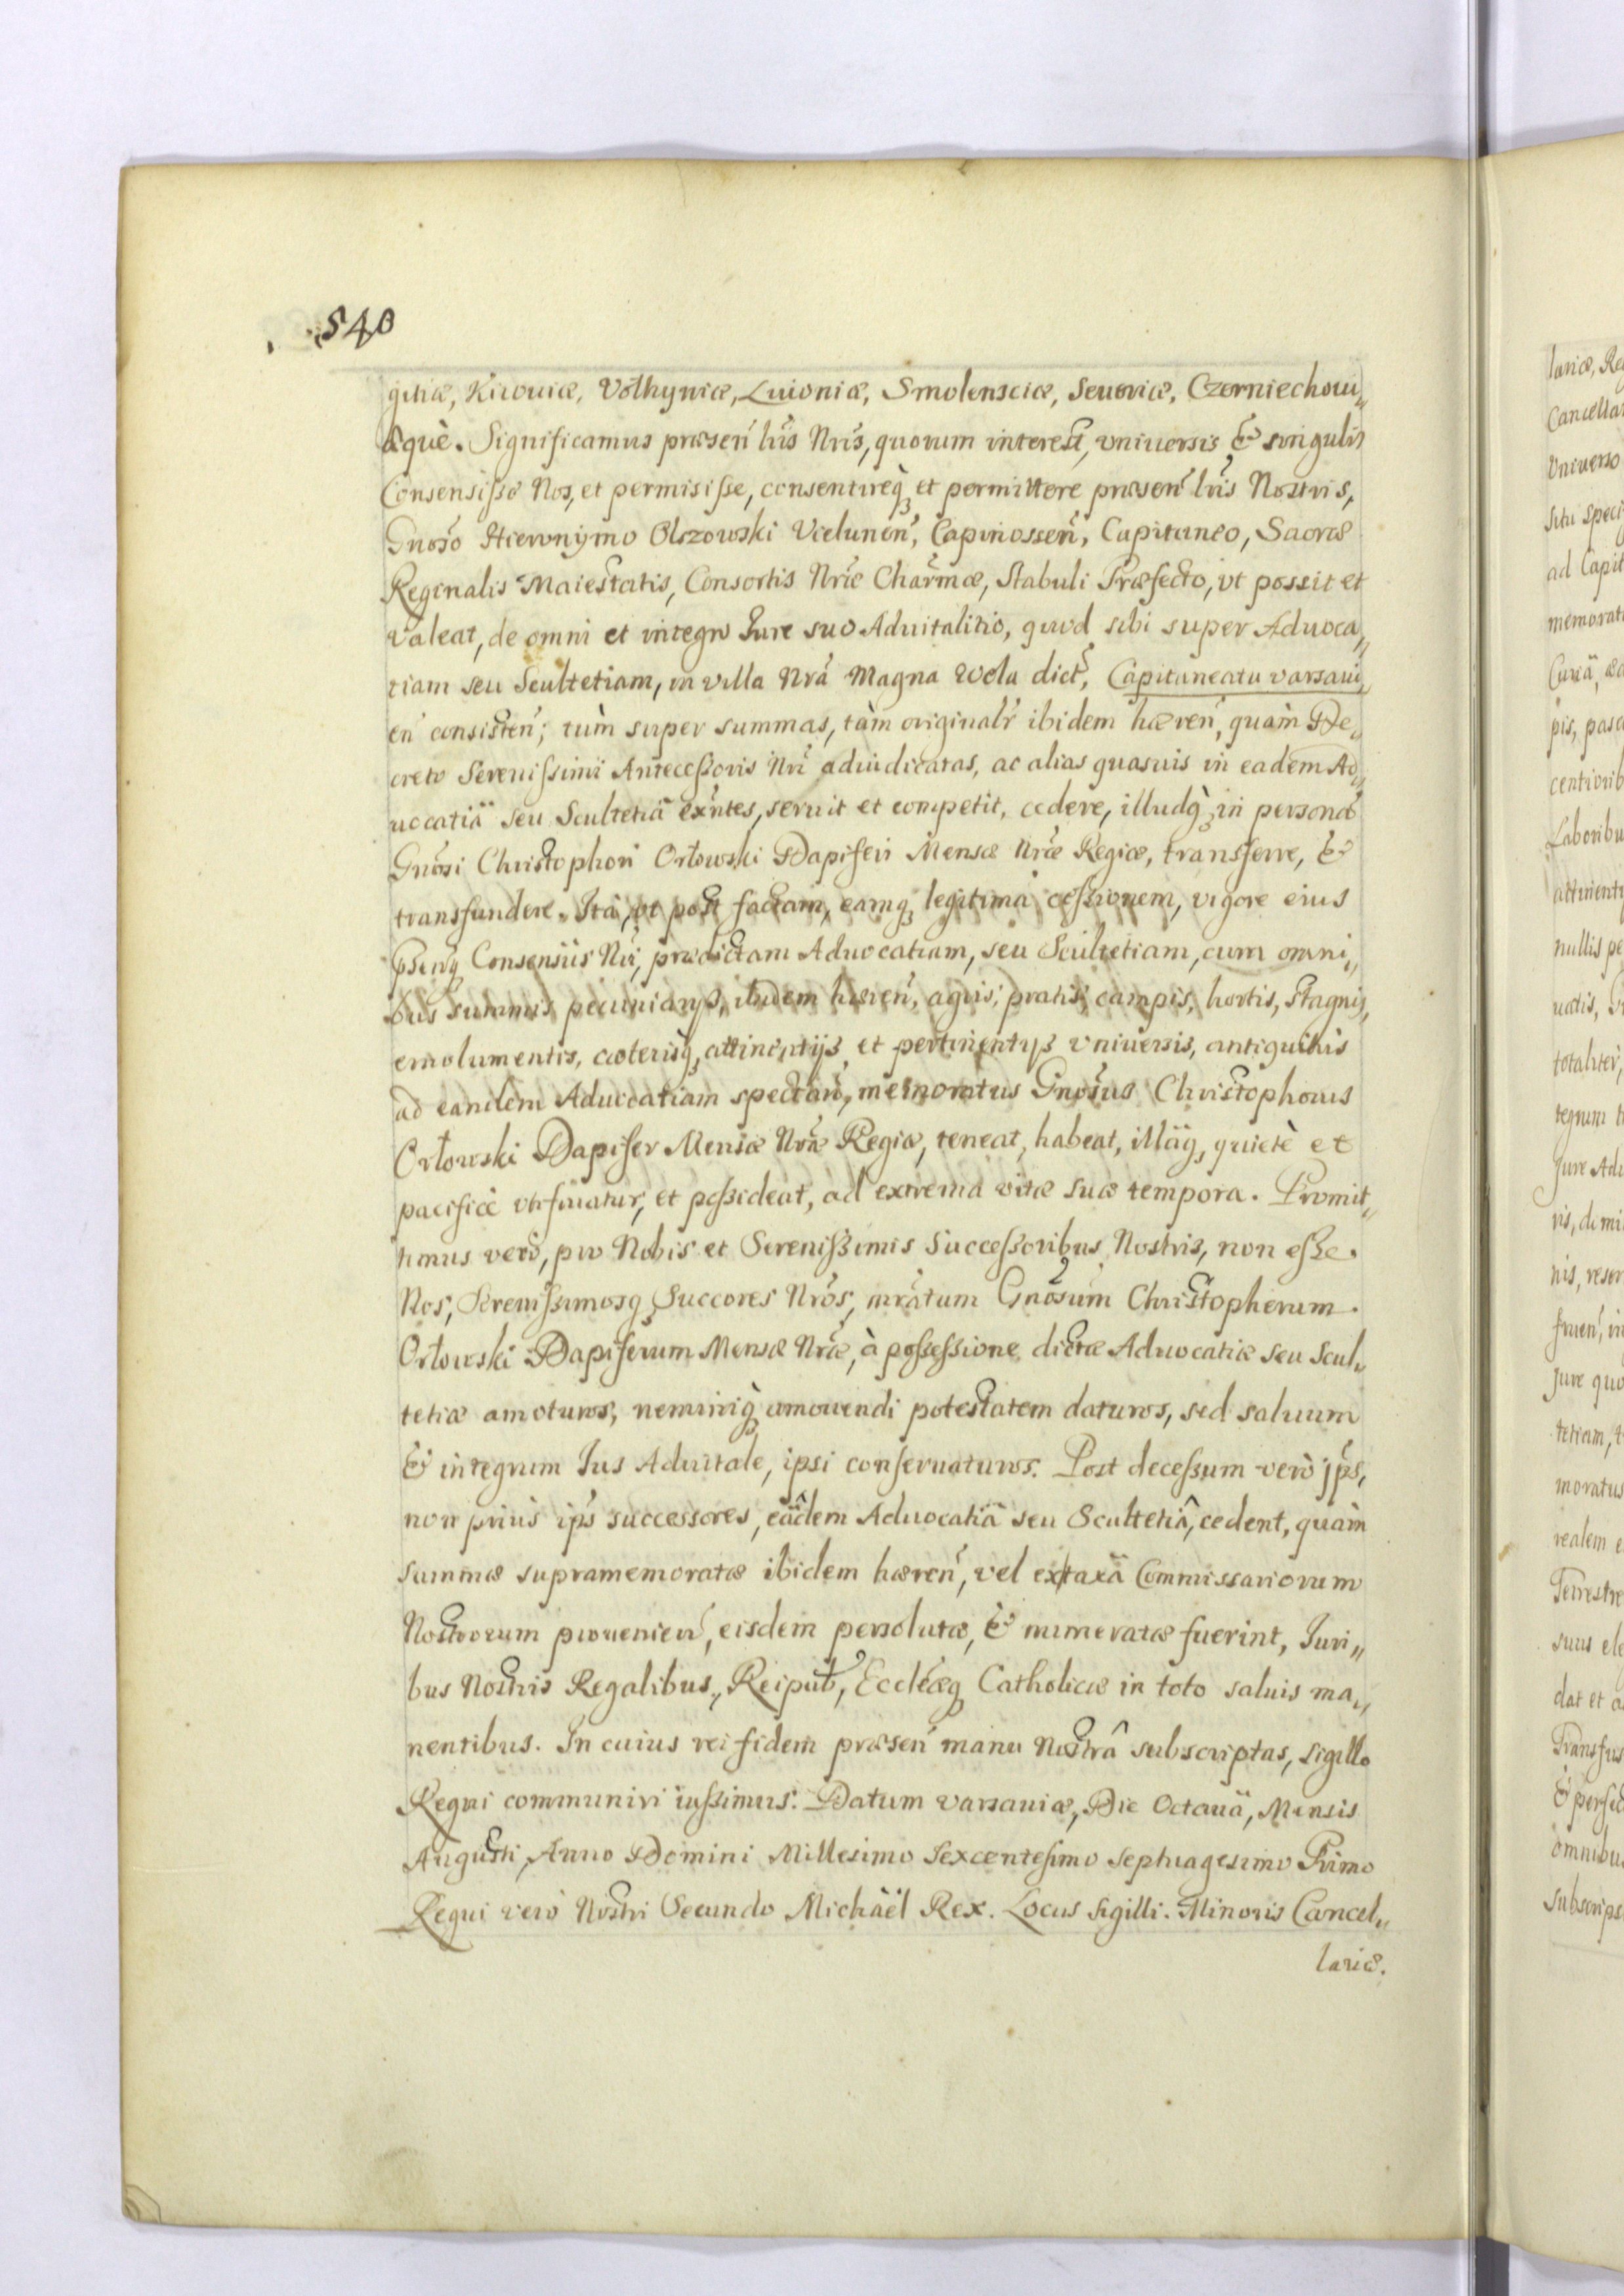 540
gitiæ, Kiiouiæ, Volhyniæ, Liuoniæ, Smolensciæ, Seueriæ, Czerniechoui„
æquè. Significamus præsen̄ lr̄is Nr̄is, quorum interest, vniuersis & singulis
Consensisse Nos, et permisisse, consentireq₃ et permittere præsen̄ lr̄is Nostris,
Gnōso Hieronymo Olszowski Vielunen̄, Capinossen̄, Capitaneo, Sacræ
Reginalis Maiestatis, Consortis Nrǣ Charm̄æ, Stabuli Præfecto, vt possit et
valeat, de omni et integro Iure suo Aduitalitio, quod sibi super Aduoca„
tiam seu Scultetiam, in villa Nrā Magna Wola dict̄, Capitaneatu varsaui„
en̄ consisten̄; tùm super summas, tàm originalr̄ ibidem hæren̄, quàm De„
creto Serenissimi Antecessoris Nrī adiudicatas, ac alias quasuis in eadem Ad„
uocatiâ seu Scultetiâ exn̄tes, seruit et competit, cedere, illudq₃ in personā
Gnōsi Christophori Orłowski Dapiferi Mensæ Nrǣ Regiæ, transferre, &
transfundere. Ità, vt post factam, eamq₃ legitimā cessionem, vigore eius
Consensûs Nrī, prædictam Aduocatiam, seu Scultetiam, cum omni„
bus summis pecuniarijs, ibidem hæren̄, agris, pratis, campis, hortis, stagnis,
emolumentis, cæterisq₃ attinentijs et pertinentijs vniuersis, antiquitùs
ad eandem Aduocatiam spectan̄, memoratus Gnōsus Christophorus
Orłowski Dapifer Mensæ Nrǣ Regiæ, teneat, habeat, illâq₃ quietè et
pacificè vtifruatur, et possideat, ad extrema vitæ suæ tempora. Promit„
timus verò, pro Nobis et Serenissimis Successoribus Nostris, non esse
Nos, Serenissimosq₃ Succores Nrōs, mrātum Gnōsum Christophorum
Orłowski Dapiferum Mensæ Nrǣ, à possessione dictæ Aduocatiæ seu Scul„
tetiæ amoturos, neminiq₃ amouendi potestatem daturos, sed saluum
& integrum Ius Aduitale, ipsi conseruaturos. Post decessum verò ip̄s,
non priùs ip̄s successores, eâdem Aduocatiâ seu Scultetiâ, cedent, quàm
summæ supramemoratæ ibidem hæren̄, vel ex taxâ Commissariorum
Nostrorum prouenien̄, eisdem persolutæ, & numeratæ fuerint, Iuri„
bus Nostris Regalibus, Reipub̄, Eccleǣq₃ Catholicæ in toto saluis ma„
nentibus. In cuius rei fidem præsen̄ manu Nostrâ subscriptas, sigillo
Regni communiri iussimus. Datum varsauiæ, Die Octauâ, Mensis
Augusti, Anno Domini Millesimo Sexcentesimo Septuagesimo Primo
Regni verò Nostri Secundo Michaël Rex. Locus Sigilli. Minoris Cancel„
lariæ.